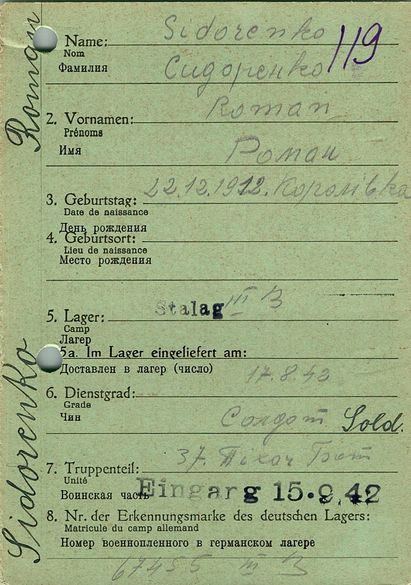 Roman
Sidorenko
119
1. Name: Sidorenko
Nom
Фамилия Сидоренко
2. Vornamen: Roman
Prénoms
Имя Роман
3. Geburtstag: 22.12.1912. Королівка
Date de naissance
День рождения
4. Geburtsort:
Lieu de naissance
Место рождения
5. Lager: Stalag III B
Camp
Лагер
5a. Im Lager eingeliefert am:
Доставлен в лагер (число) 17.8.42
6. Dienstgrad:
Grade
Чин Солдат Sold.
7. Truppenteil: 37.
Unité
Воинская часть Eingang 15.9.42
8. Nr. der Erkennungsmarke des deutschen Lagers:
Matricule du camp allemand
Номер военнопленного в германском лагере
67455 III B